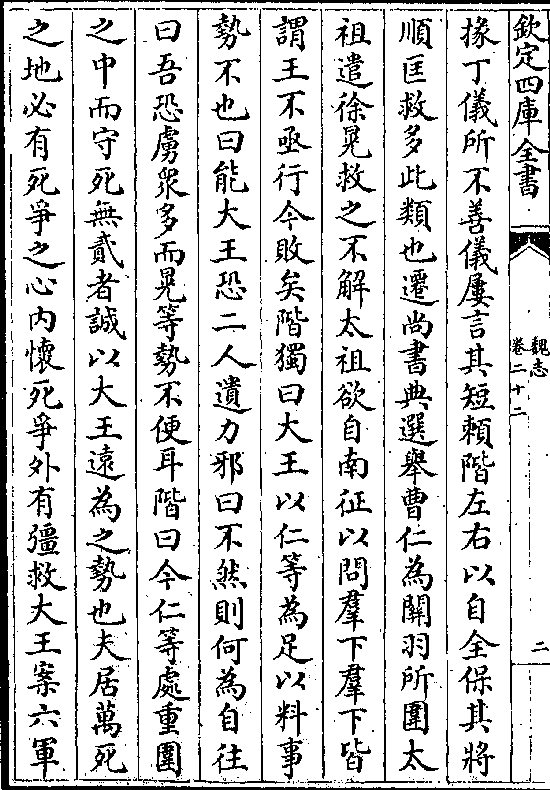 欽定四庫全書
魏志
卷二十二
二
掾丁儀所不善儀屢言其短賴階左右以自全保其將
順匡救多此類也遷尚書典選舉曹仁為關羽所圍太
祖遣徐晃救之不解太祖欲自南征以問羣下羣下皆
謂王不亟行今敗矣階獨曰大王以仁等為足以料事
勢不也曰能大王恐二人遺力邪曰不然則何為自往
曰吾恐虜衆多而晃等勢不便耳階曰今仁等處重圍
之中而守死無貳者誠以大王逺為之勢也夫居萬死
之地必有死爭之心内懷死爭外有彊救大王案六軍